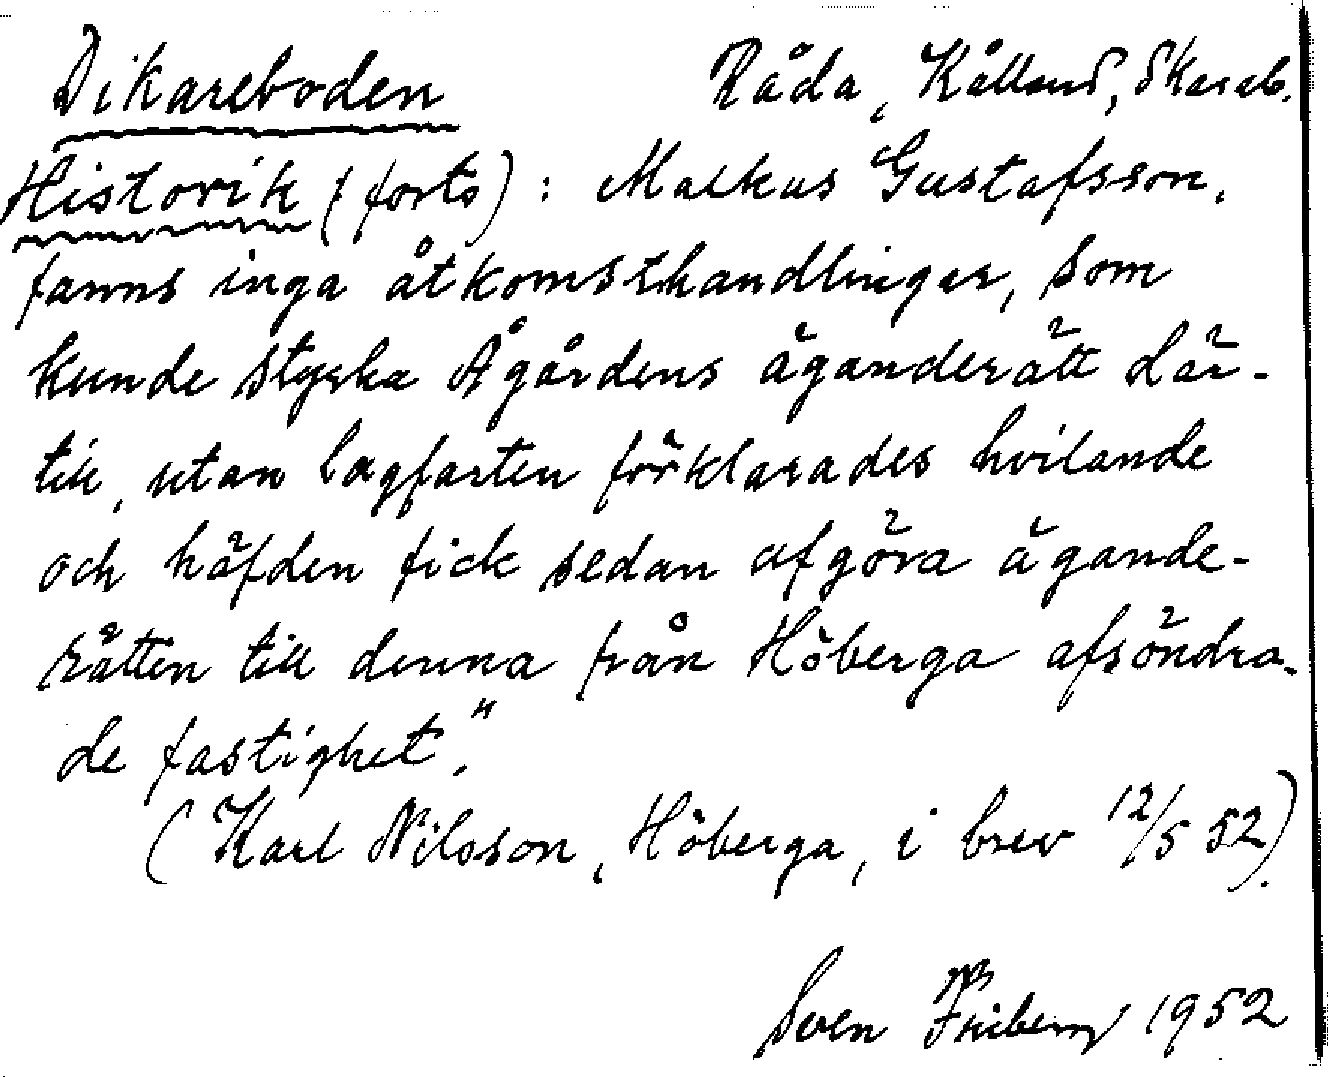 Dikareboden Råda, Kålland, Skarab.
Historik (forts): Malkus Gustafsson,
fanns inga åtkomsthandlingar, som
kunde styrka Ågårdens äganderätt där-
till, utan lagfarten förklarades hvilande
och häfden fick sedan afgöra ägande-
rätten till denna från Höberga afsöndra-
de fastighet."
(Karl Nilsson, Höberga, i brev 12/5 52).
Sven Friberg 1952